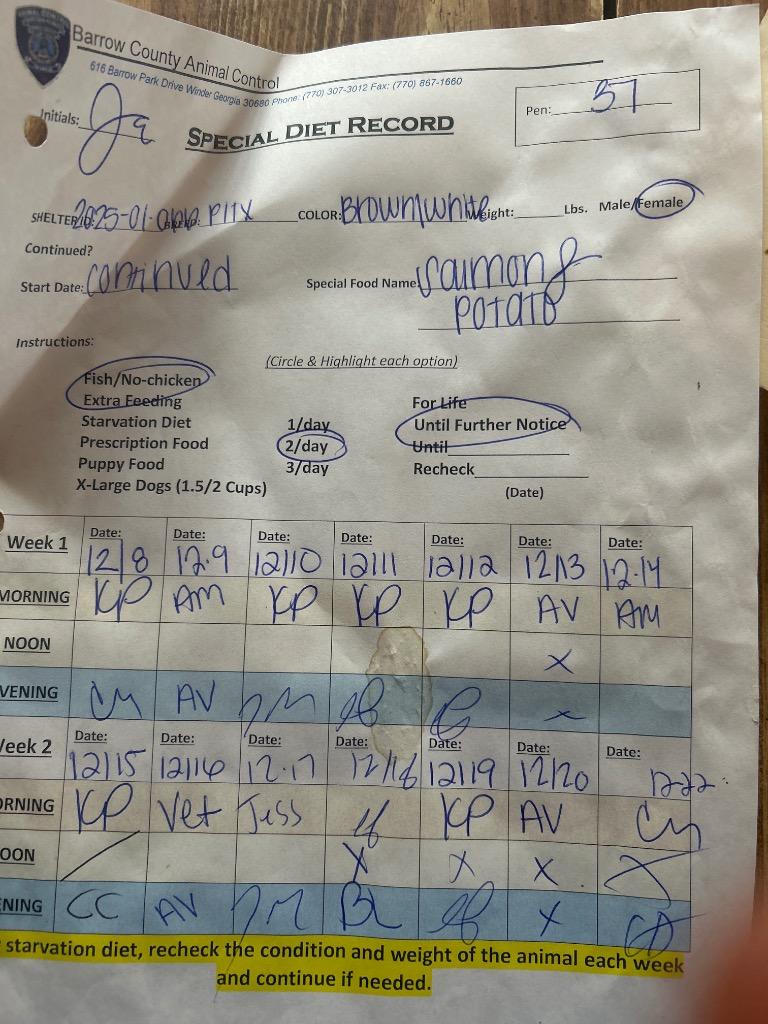 Barrow County Animal Control
616 Barrow Park Drive Winder Georgia 30680 Phone: (770) 307-3012 Fax: (770) 867-1660
Initials:
SPECIAL DIET RECORD
Pen: 37
SHELTER ID: 2025-01- COLOR: Brown/white Weight: Lbs. Male/Female
Continued?
Start Date: continued Special Food Name: Salmon &
Potato
Instructions:
(Circle & Highlight each option)
Fish/No-chicken
Extra Feeding For Life
Starvation Diet 1/day Until Further Notice
Prescription Food 2/day Until
Puppy Food 3/day Recheck
X-Large Dogs (1.5/2 Cups) (Date)
Week 1 Date: Date: Date: Date: Date: Date: Date:
12/8 12.9 12/10 12/11 12/12 12/13 12.14
MORNING KP AM KP KP KP AV AM
NOON X
VENING CM AV JM X
Week 2 Date: Date: Date: Date: Date: Date: Date:
12/15 12/16 12.17 12/18 12/19 12/20 12-22
ORNING KP Vet Jess KP AV CM
OON / X X X X
NING CC AV JM BL X
starvation diet, recheck the condition and weight of the animal each week
and continue if needed.